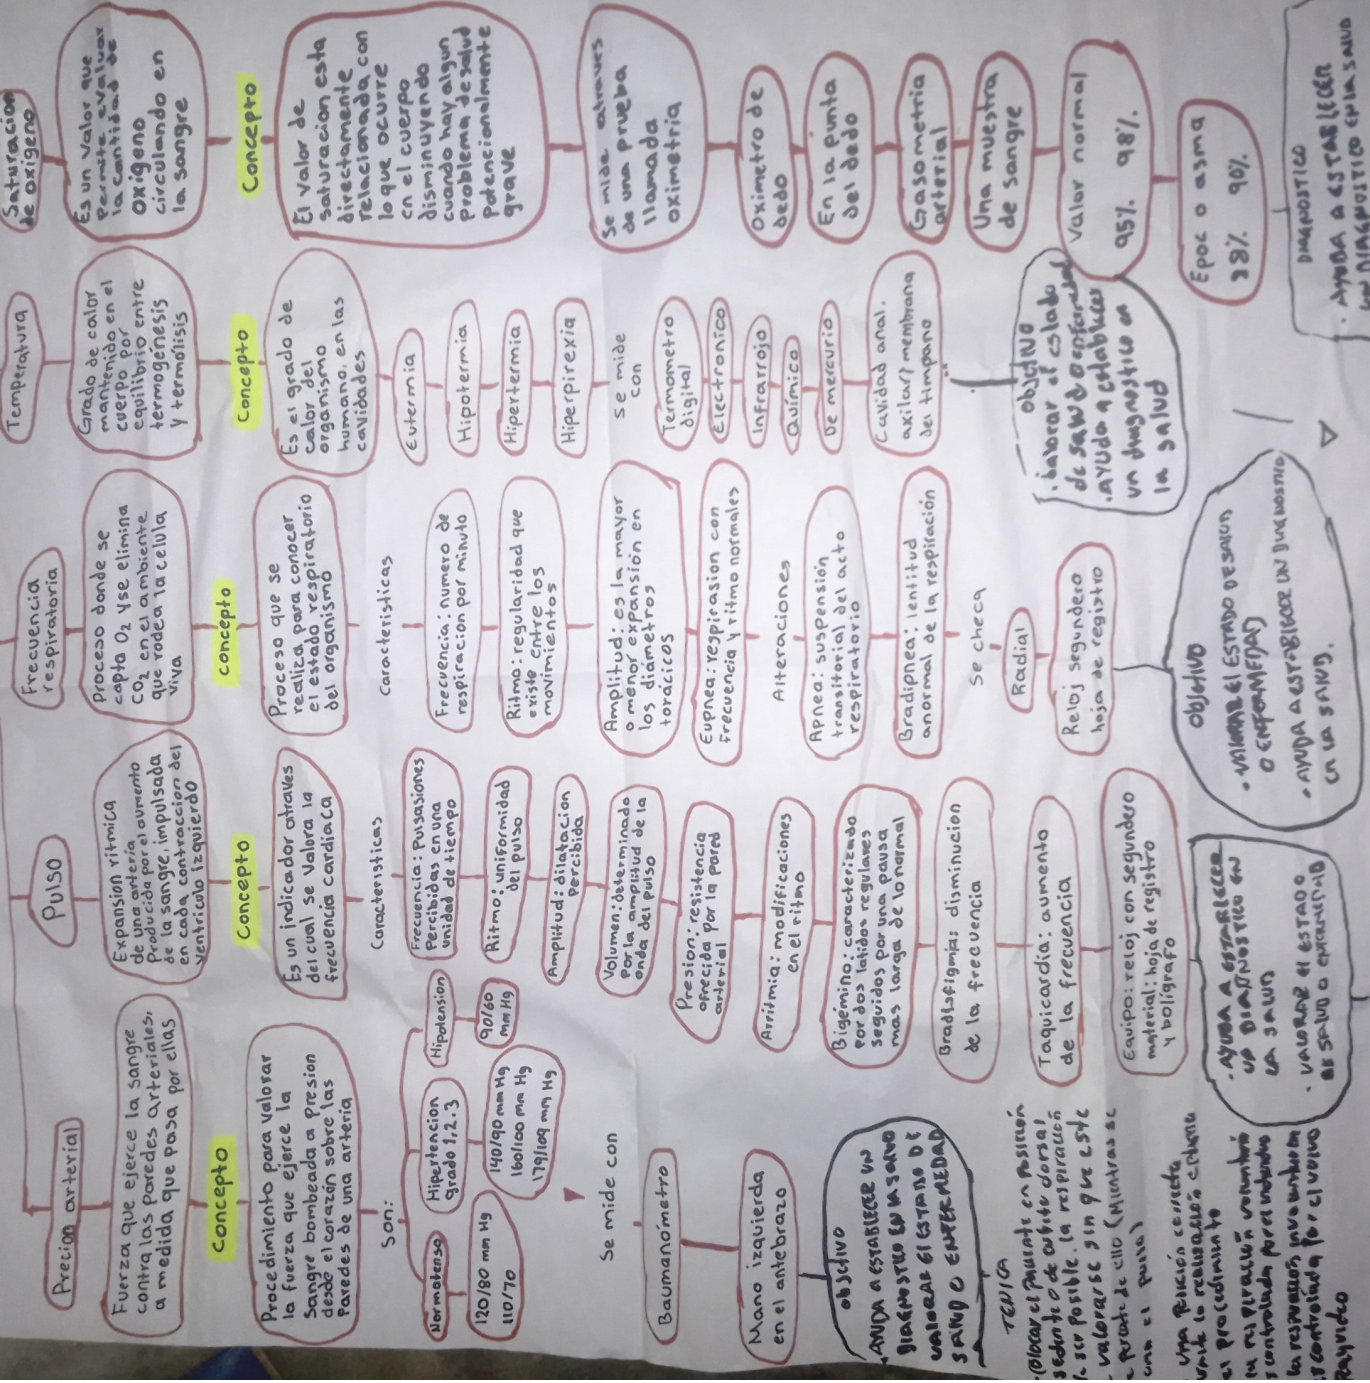 Precion arterial
Fuerza que ejerce la sangre
contra las paredes arteriales,
a medida que pasa por ellas
Concepto
Procedimiento para valorar
la fuerza que ejerce la
Sangre bombeada a presion
desde el corazón sobre las
Paredes de una arteria
Son:
Normotenso
120/80 mm Hg
110/70
Hipertencion
grado 1,2.3
140/90 mm Hg
160/100 mm Hg
179/109 mm Hg
Hipotension
90/60
mm Hg
Se mide con
Baumanómetro
Mano izquierda
en el antebrazo
objetivo
AYUDA A ESTABLECER UN
DIAGNOSTICO EN LA SALUD
VALORAR El ESTADO DE
SALUD O ENFERMEDAD
TENICA
el paciente en posición
de cubito dorsal
ser posible. la respiración
valorarse sin que este
de ello (Mientras se
el pulso)
una posición
la realización
el procedimiento
respiración
controlada por el
la respiración
controlada por el
Pulso
Expansion ritmica
de una arteria
Producida por el aumento
de la sangre, impulsada
en cada contraccion del
ventriculo izquierdo
Concepto
Es un indicador atraves
del cual se Valora la
frecuencia cardiaca
Caracteristicas
Frecuencia: Pulsasiones
Percibidas en una
unidad de tiempo
Ritmo: uniformidad
del pulso
Amplitud: dilatacion
percibida
Volumen: determinado
por la amplitud de la
onda del pulso
Presion: resistencia
ofrecida por la pared
arterial
Arritmia: modificaciones
en el ritmo
Bigémino: caracterizado
por dos latidos regulares
seguidos por una pausa
mas larga de lo normal
Bradisfigmia: disminucion
de la frecuencia
Taquicardia: aumento
de la frecuencia
Equipo: reloj con segundero
material: hoja de registro
y boligrafo
AYUDA A ESTABLECER
UN DIAGNOSTICO EN
LA SALUD
VALORAR El ESTADO
DE SALUD O ENFERMEDAD
Frecuencia
respiratoria
Proceso donde se
capta O2 y se elimina
CO2 en el ambiente
que rodea la celula
viva
concepto
Proceso que se
realiza para conocer
el estado respiratorio
del organismo
Caracteristicas
Frecuencia: numero de
respiracion por minuto
Ritmo: regularidad que
existe entre los
movimientos
Amplitud: es la mayor
o menor expansión en
los diámetros
torácicos
Eupnea: respirasion con
frecuencia y ritmo normales
Alteraciones
Apnea: suspensión
transitorial del acto
respiratorio
Bradipnea: lentitud
anormal de la respiración
Se checa
Radial
Reloj segundero
hoja de registro
objetivo
El ESTADO DE SALUD
O
AYUDA A ESTABLECER UN DIAGNOSTICO
EN LA SALUD.
Temperatura
Grado de calor
mantenido en el
cuerpo por
equilibrio entre
termogenesis
y termólisis
Concepto
Es el grado de
calor del
organismo
humano, en las
cavidades
Eutermia
Hipotermia
Hipertermia
Hiperpirexia
Se mide
con
Termometro
digital
Electronico
Infrarrojo
Químico
De mercurio
Cavidad anal.
axilar/membrana
del timpano
objetivo
el estado
de salud o enfermedad
AYUDA A establecer
un diagnostico en
la salud
Saturacion
de oxigeno
Es un Valor que
Permite evaluar
la cantidad de
oxigeno
circulando en
la sangre
Concepto
El valor de
saturacion esta
directamente
relacionada con
lo que ocurre
en el cuerpo
disminuyendo
cuando hay algun
problema de salud
potencionalmente
grave
Se mide atraves
de una prueba
llamada
oximetria
Oximetro de
dedo
En la punta
del dedo
Gasometria
arterial
Una muestra
de sangre
Valor normal
95% 98%
Epoc o asma
88% 90%
DIAGNOSTICO
AYUDA A ESTABLECER
DIAGNOSTICO EN LA SALUD